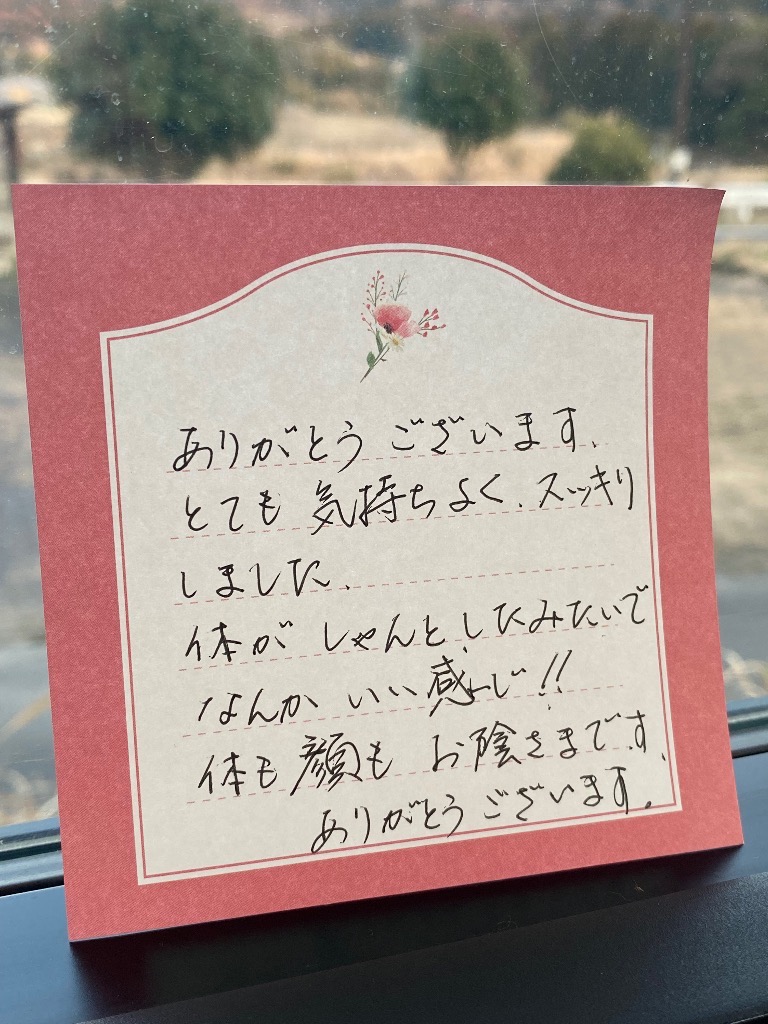 ありがとうございます、
とても気持ちよく、スッキリ
しました、
体がしゃんとしたみたいで
なんかいい感じ!!
体も顔もお陰さまです、
ありがとうございます。